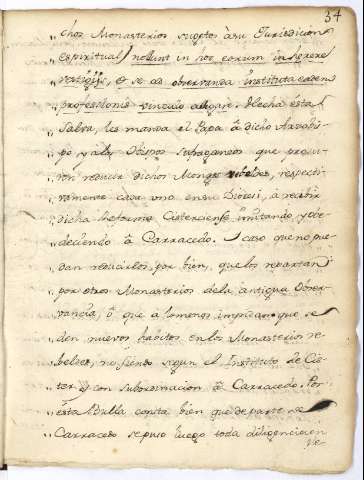 34
" chos Monasterios sugetos à su Jurisdicion
" espiritual nollent in hoc eorum inherere
" vestigijs, & se ad observanda instituta eadem
" professionis vinculo alligare. Y hecha ésta
" salva, les manda el Papa â dicho Arzobis-
" po, y a los Obispos sufraganeos que procu-
" ren reducir dichos Monges rebeldes, respecti-
" vamente cada uno en su Diocesi, à recibir
" dicha Reforma Cisterciense imitando, y obe-
" deciendo â Carracedo. Y caso que no pue-
" dan reducirlos por bien, que los repartan
" por otros Monasterios de la antigua Obser-
" vancia, ô que a lo menos impidan que se
" den nuevos habitos en los Monasterios re-
" beldes, no siendo segun el Instituto de Cis-
" ter, y con subordinacion â Carracedo. Por
" ésta Bulla consta bien que de parte de
" Carracedo se puso luego toda diligencia en